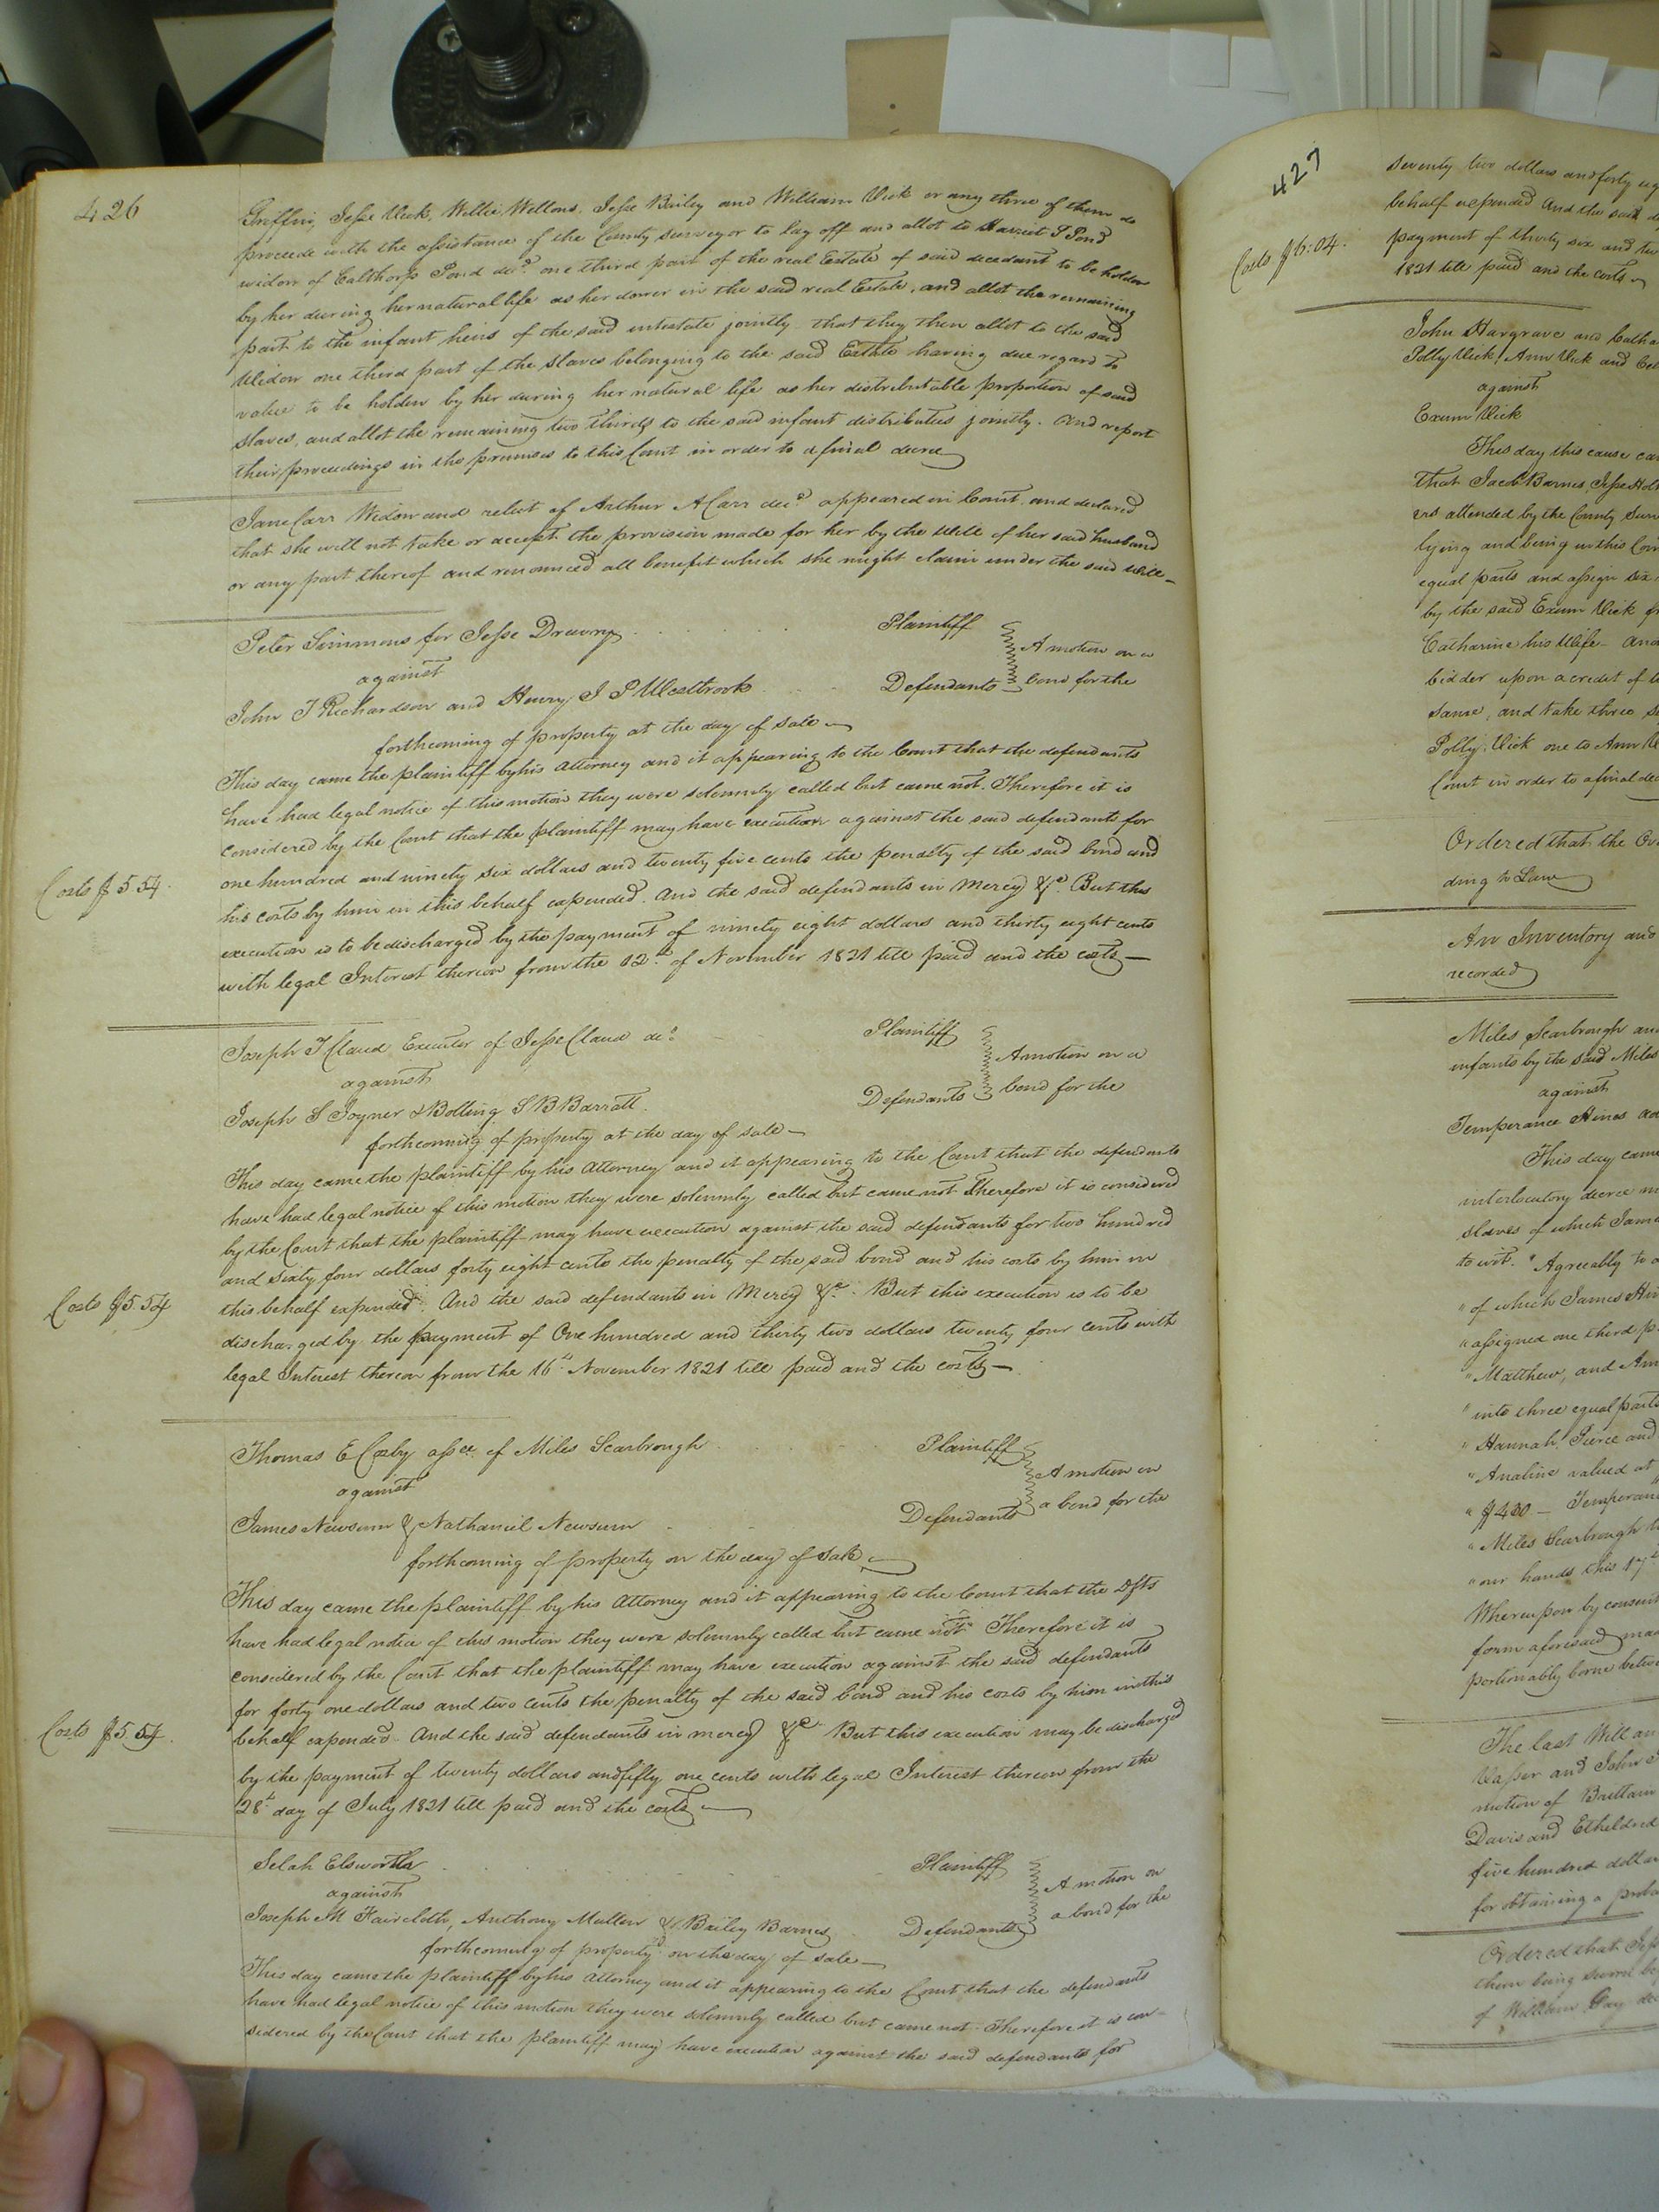 426
Griffin, Jesse Vick, Willie Wellons, Jesse Bailey and William Vick or any three of them do
procede with the assistance of the County surveyor to lay off and allot to Harriet S Pond
widow of Calthorp Pond decd. one third part of the real Estate of said decedant to be holden
by her during her natural life as her dower in the said real Estate, and allot the remaining
part to the infant heirs of the said intestate jointly that they then allot to the said
Widow one third part of the slaves belonging to the said Estate having due regard to
value to be holden by her during her natural life as her distributable proportion of said
slaves, and allot the remaining two thirds to the said infant distributees jointly. And report
their proceedings in the premises to this Court in order to a final decree
Jane Carr Widow and relict of Arthur A Carr decd. appeared in Court and declared
that she will not take or accept the provision made for her by the Will of her said husband
or any part thereof and renounced all benefit which she might claim under the said Will
Peter Simmons for Jesse Drewry Plaintiff
against A motion on a
John T Richardson and Henry J P Westbrook Defendants bond for the
forthcoming of property at the day of sale
This day came the plaintiff by his attorney and it appearing to the Court that the defendants
have had legal notice of this motion they were solemnly called but came not. Therefore it is
considered by the Court that the plaintiff may have execution against the said defendants for
Costs $5 54. one hundred and ninety six dollars and twenty five cents the penalty of the said bond and
his costs by him in this behalf expended. And the said defendants in Mercy &c. But this
execution is to be discharged by the payment of ninety eight dollars and thirty eight cents
with legal Interest thereon from the 12th of November 1821 till paid and the costs
Joseph T Claud Executor of Jesse Claud decd. Plaintiff
against A motion on a
Joseph S Joyner & Bolling S B Barratt Defendants bond for the
forthcoming of property at the day of sale
This day came the plaintiff by his Attorney and it appearing to the Court that the defendants
have had legal notice of this motion they were solemnly called but came not Therefore it is considered
by the Court that the plaintiff may have execution against the said defendants for two hundred
and sixty four dollars forty eight cents the penalty of the said bond and his costs by him in
Costs $5.54 this behalf expended. And the said defendants in Mercy &c. But this execution is to be
discharged by the payment of One hundred and thirty two dollars twenty four cents with
legal Interest thereon from the 16th November 1821 till paid and the costs
Thomas E Cosby assee of Miles Scarbrough Plaintiff
against A motion on
James Newsum & Nathaniel Newsum Defendants a bond for the
forthcoming of property on the day of sale
This day came the plaintiff by his Attorney and it appearing to the Court that the Dfts
have had legal notice of this motion they were solemnly called but came not Therefore it is
considered by the Court that the plaintiff may have execution against the said defendants
for forty one dollars and two cents the penalty of the said bond and his costs by him in this
Costs $5.54. behalf expended. And the said defendants in mercy &c But this execution may be discharged
by the payment of twenty dollars and fifty one cents with legal Interest thereon from the
28th day of July 1821 till paid and the costs
Selah Elsworth Plaintiff
against A motion on
Joseph M Faircloth, Anthony Mullen & Bailey Barnes Defendants a bond for the
forthcoming of property on the day of sale
This day came the plaintiff by his attorney and it appearing to the Court that the defendants
have had legal notice of this motion they were solemnly called but came not. Therefore it is con-
sidered by the Court that the plaintiff may have execution against the said defendants for
427
seventy two dollars and forty
behalf expended And the said
Costs $6:04. payment of thirty six and
1821 till paid and the costs
John Hargrave and
Polly Vick, Ann Vick and
against
Exum Vick
This day this cause
That Jacob Barnes, Jesse
ers attended by the County
lying and being in this
equal parts and assign six
by the said Exum Vick
Catharine his Wife. And
bidder upon a credit of
same, and take three
Polly Vick one to Ann
Court in order to a final
Ordered that the
ding to Law
An Inventory and
recorded
Miles Scarbrough and
infants by the said Miles
against
Temperance Hines
This day came
interlocutory decree
slaves of which James
to wit. "Agreeably to
"of which James
"assigned one third
"Matthew, and
"into three equal parts
"Hannah, Pierce and
"Analine valued at
"$400 —
"Miles Scarbrough
"our hands this 17th
Whereupon by consent
form aforesaid
portionably borne
The last Will
and John
motion of Brittain
Davis and Etheldred
five hundred dollars
for obtaining a
Ordered that
them being sworn
of William Gay